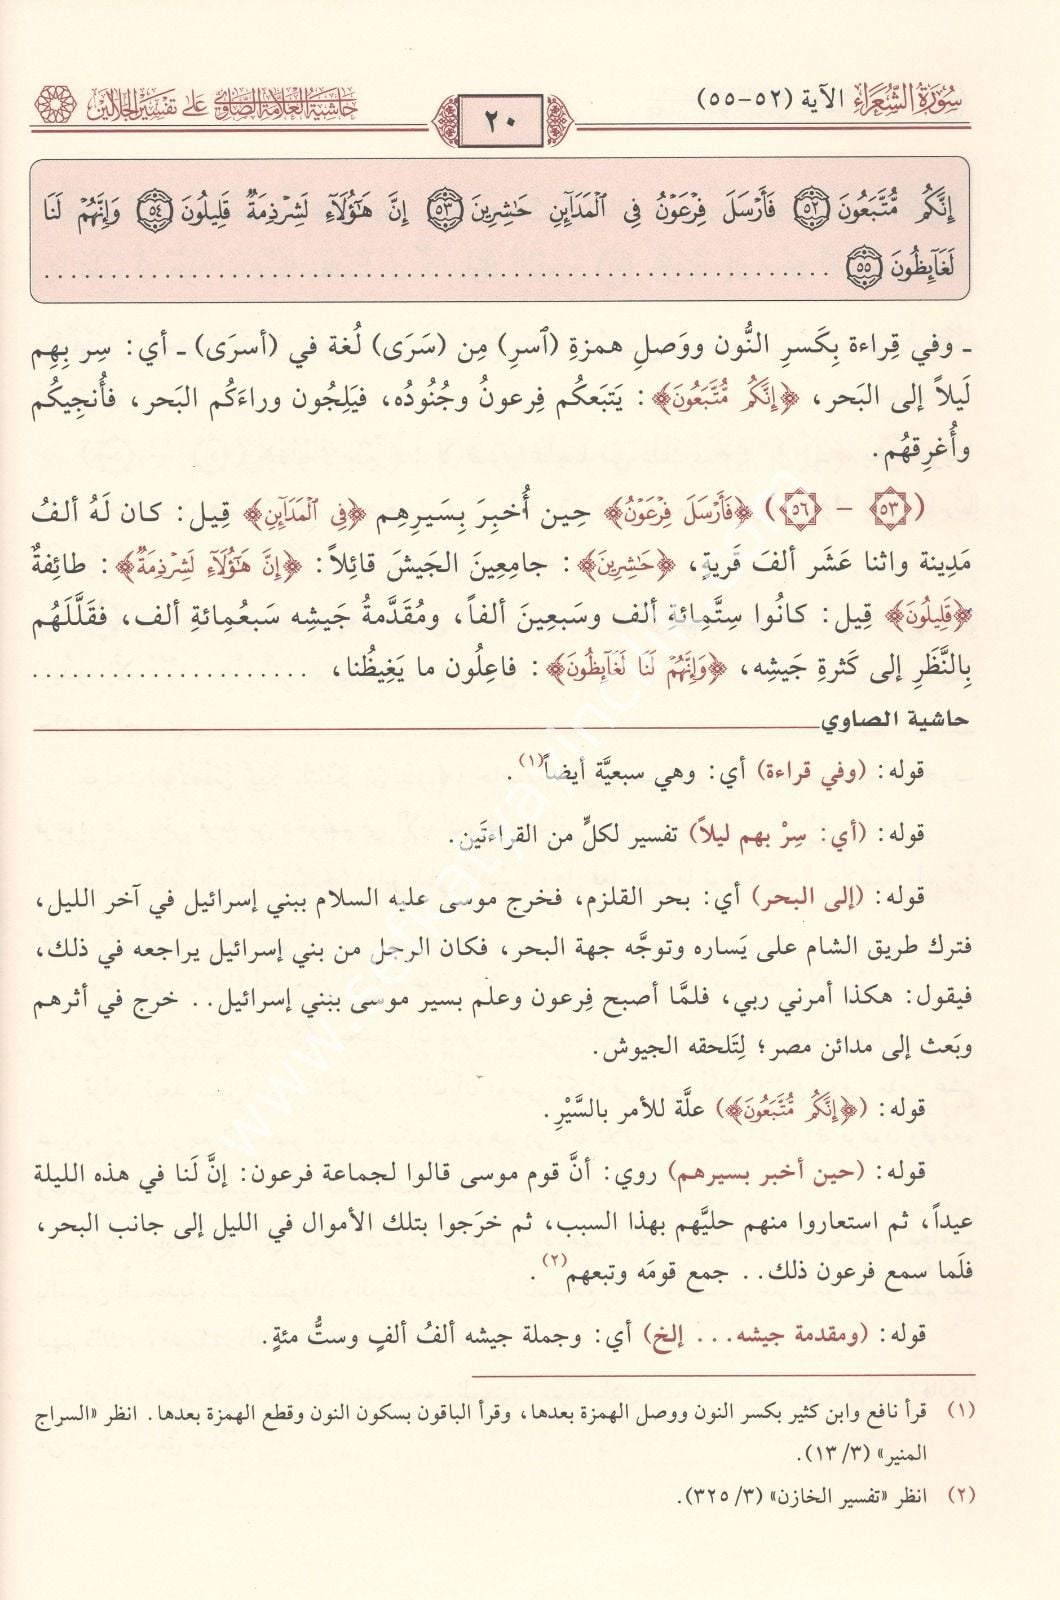 سُورَةُ الشُّعَرَاءِ الآية (٥٢-٥٥)
٢٠
حاشية العلامة الصاوي على تفسير الجلالين
إِنَّكُم مُّتَّبَعُونَ ٥٢ فَأَرْسَلَ فِرْعَوْنُ فِي ٱلْمَدَآئِنِ حَٰشِرِينَ ٥٣ إِنَّ هَٰٓؤُلَآءِ لَشِرْذِمَةٌ قَلِيلُونَ ٥٤ وَإِنَّهُمْ لَنَا
لَغَآئِظُونَ ٥٥ ........................................
ـ وفي قِراءة بِكَسرِ النُّون ووَصلِ همزةِ (ٱسرِ) مِن (سَرَى) لُغة في (أسرَى) ـ أي: سِر بِهِم
لَيلاً إلى البَحر، ﴿إِنَّكُم مُّتَّبَعُونَ﴾: يَتبَعكُم فِرعونُ وجُنُودُه، فيَلِجُون وراءَكُم البَحر، فأُنجِيكُم
وأُغرِقهُم.
(٥٣ - ٥٦) ﴿فَأَرْسَلَ فِرْعَوْنُ﴾ حِين أُخبِرَ بِسَيرِهِم ﴿فِي ٱلْمَدَآئِنِ﴾ قِيل: كان لَهُ ألفُ
مَدِينة واثنا عَشَر ألفَ قَريةٍ، ﴿حَٰشِرِينَ﴾: جامِعِينَ الجَيشَ قائِلاً: ﴿إِنَّ هَٰٓؤُلَآءِ لَشِرْذِمَةٌ﴾: طائِفةٌ
﴿قَلِيلُونَ﴾ قِيل: كانُوا سِتَّمِائةِ ألف وسَبعِينَ ألفاً، ومُقدَّمةُ جَيشِه سَبعُمِائةِ ألف، فقَلَّلَهُم
بِالنَّظَرِ إلى كَثرةِ جَيشِه، ﴿وَإِنَّهُمْ لَنَا لَغَآئِظُونَ﴾: فاعِلُون ما يَغِيظُنا، .....................
حاشية الصاوي
قوله: (وفي قراءة) أي: وهي سبعيَّة أيضاً(١).
قوله: (أي: سِرْ بهم ليلاً) تفسير لكلٍّ من القراءتَين.
قوله: (إلى البحر) أي: بحر القلزم، فخرج موسى عليه السلام ببني إسرائيل في آخر الليل،
فترك طريق الشام على يَساره وتوجَّه جهة البحر، فكان الرجل من بني إسرائيل يراجعه في ذلك،
فيقول: هكذا أمرني ربي، فلمَّا أصبح فِرعون وعلم بسير موسى ببني إسرائيل.. خرج في أثرهم
وبَعث إلى مدائن مصر؛ لِتَلحقه الجيوش.
قوله: (﴿إِنَّكُم مُّتَّبَعُونَ﴾) علَّة للأمر بالسَّيْرِ.
قوله: (حين أخبر بسيرهم) روي: أنَّ قوم موسى قالوا لجماعة فرعون: إنَّ لَنا في هذه الليلة
عيداً، ثم استعاروا منهم حليَّهم بهذا السبب، ثم خرَجوا بتلك الأموال في الليل إلى جانب البحر،
فلَما سمع فرعون ذلك.. جمع قومَه وتبعهم(٢).
قوله: (ومقدمة جيشه... إلخ) أي: وجملة جيشه ألفُ ألفٍ وستُّ مئةٍ.
(١) قرأ نافع وابن كثير بكسر النون ووصل الهمزة بعدها، وقرأ الباقون بسكون النون وقطع الهمزة بعدها. انظر «السراج
المنير» (٣/ ١٣).
(٢) انظر «تفسير الخازن» (٣/ ٣٢٥).